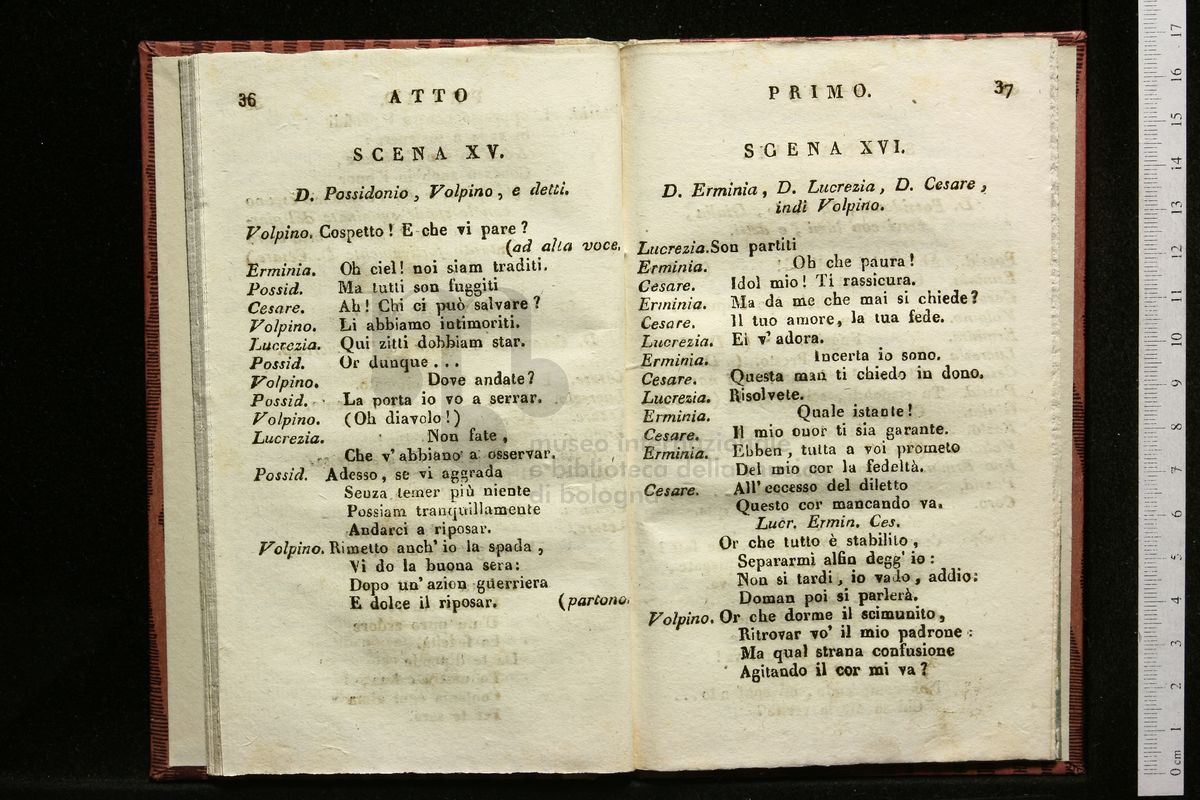 36 ATTO
SCENA XV.
D. Possidonio, Volpino, e detti.
Volpino. Cospetto! E che vi pare?
(ad alta voce.
Erminia. Oh ciel! noi siam traditi.
Possid. Ma tutti son fuggiti
Cesare. Ah! Chi ci può salvare?
Volpino. Li abbiamo intimoriti.
Lucrezia. Qui zitti dobbiam star.
Possid. Or dunque...
Volpino. Dove andate?
Possid. La porta io vo a serrar.
Volpino. (Oh diavolo!)
Lucrezia. Non fate,
Che v'abbiano a osservar.
Possid. Adesso, se vi aggrada
Senza temer più niente
Possiam tranquillamente
Andarci a riposar.
Volpino. Rimetto anch'io la spada,
Vi do la buona sera:
Dopo un'azion guerriera
E dolce il riposar. (partono.
PRIMO. 37
SCENA XVI.
D. Erminia, D. Lucrezia, D. Cesare,
indi Volpino.
Lucrezia. Son partiti
Erminia. Oh che paura!
Cesare. Idol mio! Ti rassicura.
Erminia. Ma da me che mai si chiede?
Cesare. Il tuo amore, la tua fede.
Lucrezia. Ei v'adora.
Erminia. Incerta io sono.
Cesare. Questa man ti chiedo in dono.
Lucrezia. Risolvete.
Erminia. Quale istante!
Cesare. Il mio onor ti sia garante.
Erminia. Ebben, tutta a voi prometo
Del mio cor la fedeltà.
Cesare. All'eccesso del diletto
Questo cor mancando va.
Lucr. Ermin. Ces.
Or che tutto è stabilito,
Separarmi alfin degg'io:
Non si tardi, io vado, addio:
Doman poi si parlerà.
Volpino. Or che dorme il scimunito,
Ritrovar vo' il mio padrone:
Ma qual strana confusione
Agitando il cor mi va?
museo internazionale
e biblioteca della musica
di bologna
0 cm 1 2 3 4 5 6 7 8 9 10 11 12 13 14 15 16 17